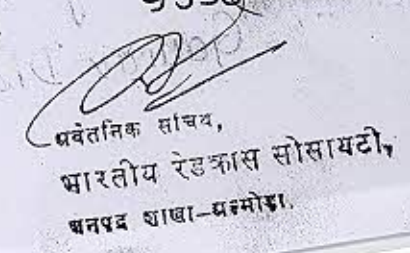 अवैतनिक सचिव,
भारतीय रेडक्रास सोसायटी,
जनपद शाखा-अल्मोड़ा.